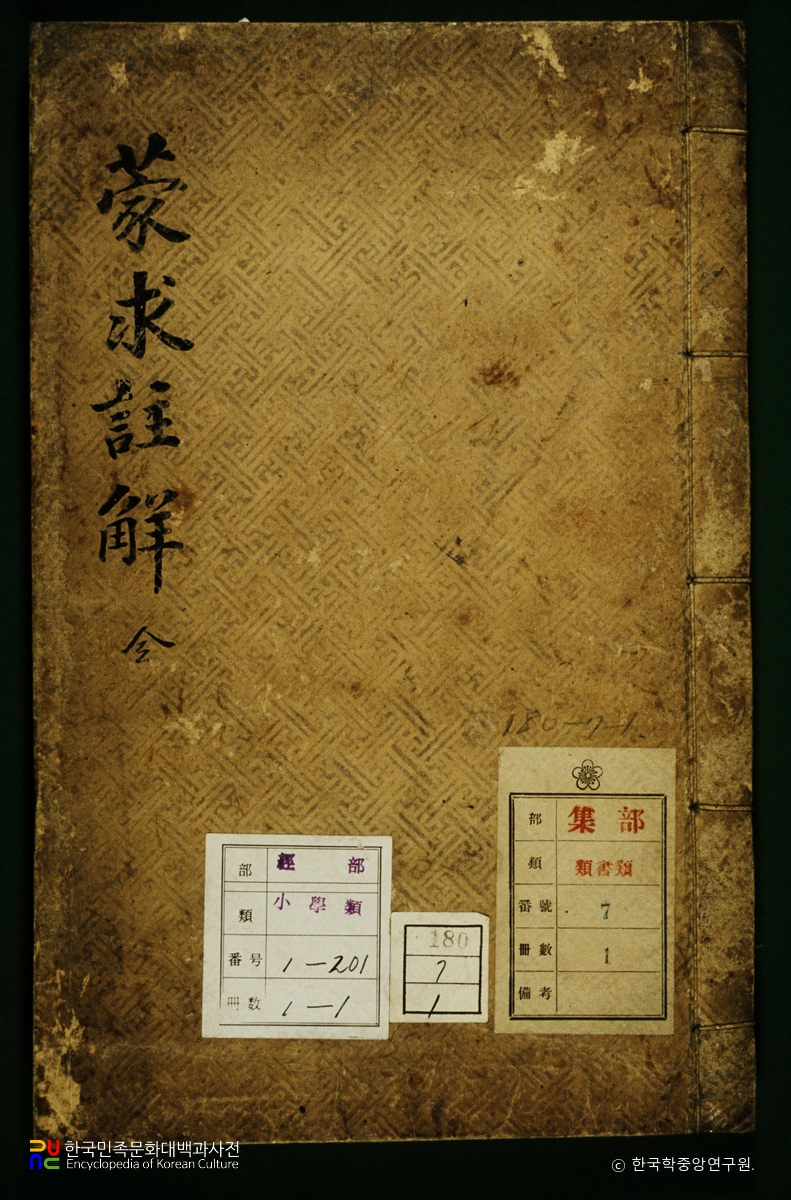 蒙求註解 全
180-7-1
部 經部
類 小學類
番号 1-201
冊数 1-1
180
7
1
部 集部
類 類書類
番號 7
冊數 1
備考
한국민족문화대백과사전
Encyclopedia of Korean Culture
ⓒ 한국학중앙연구원.